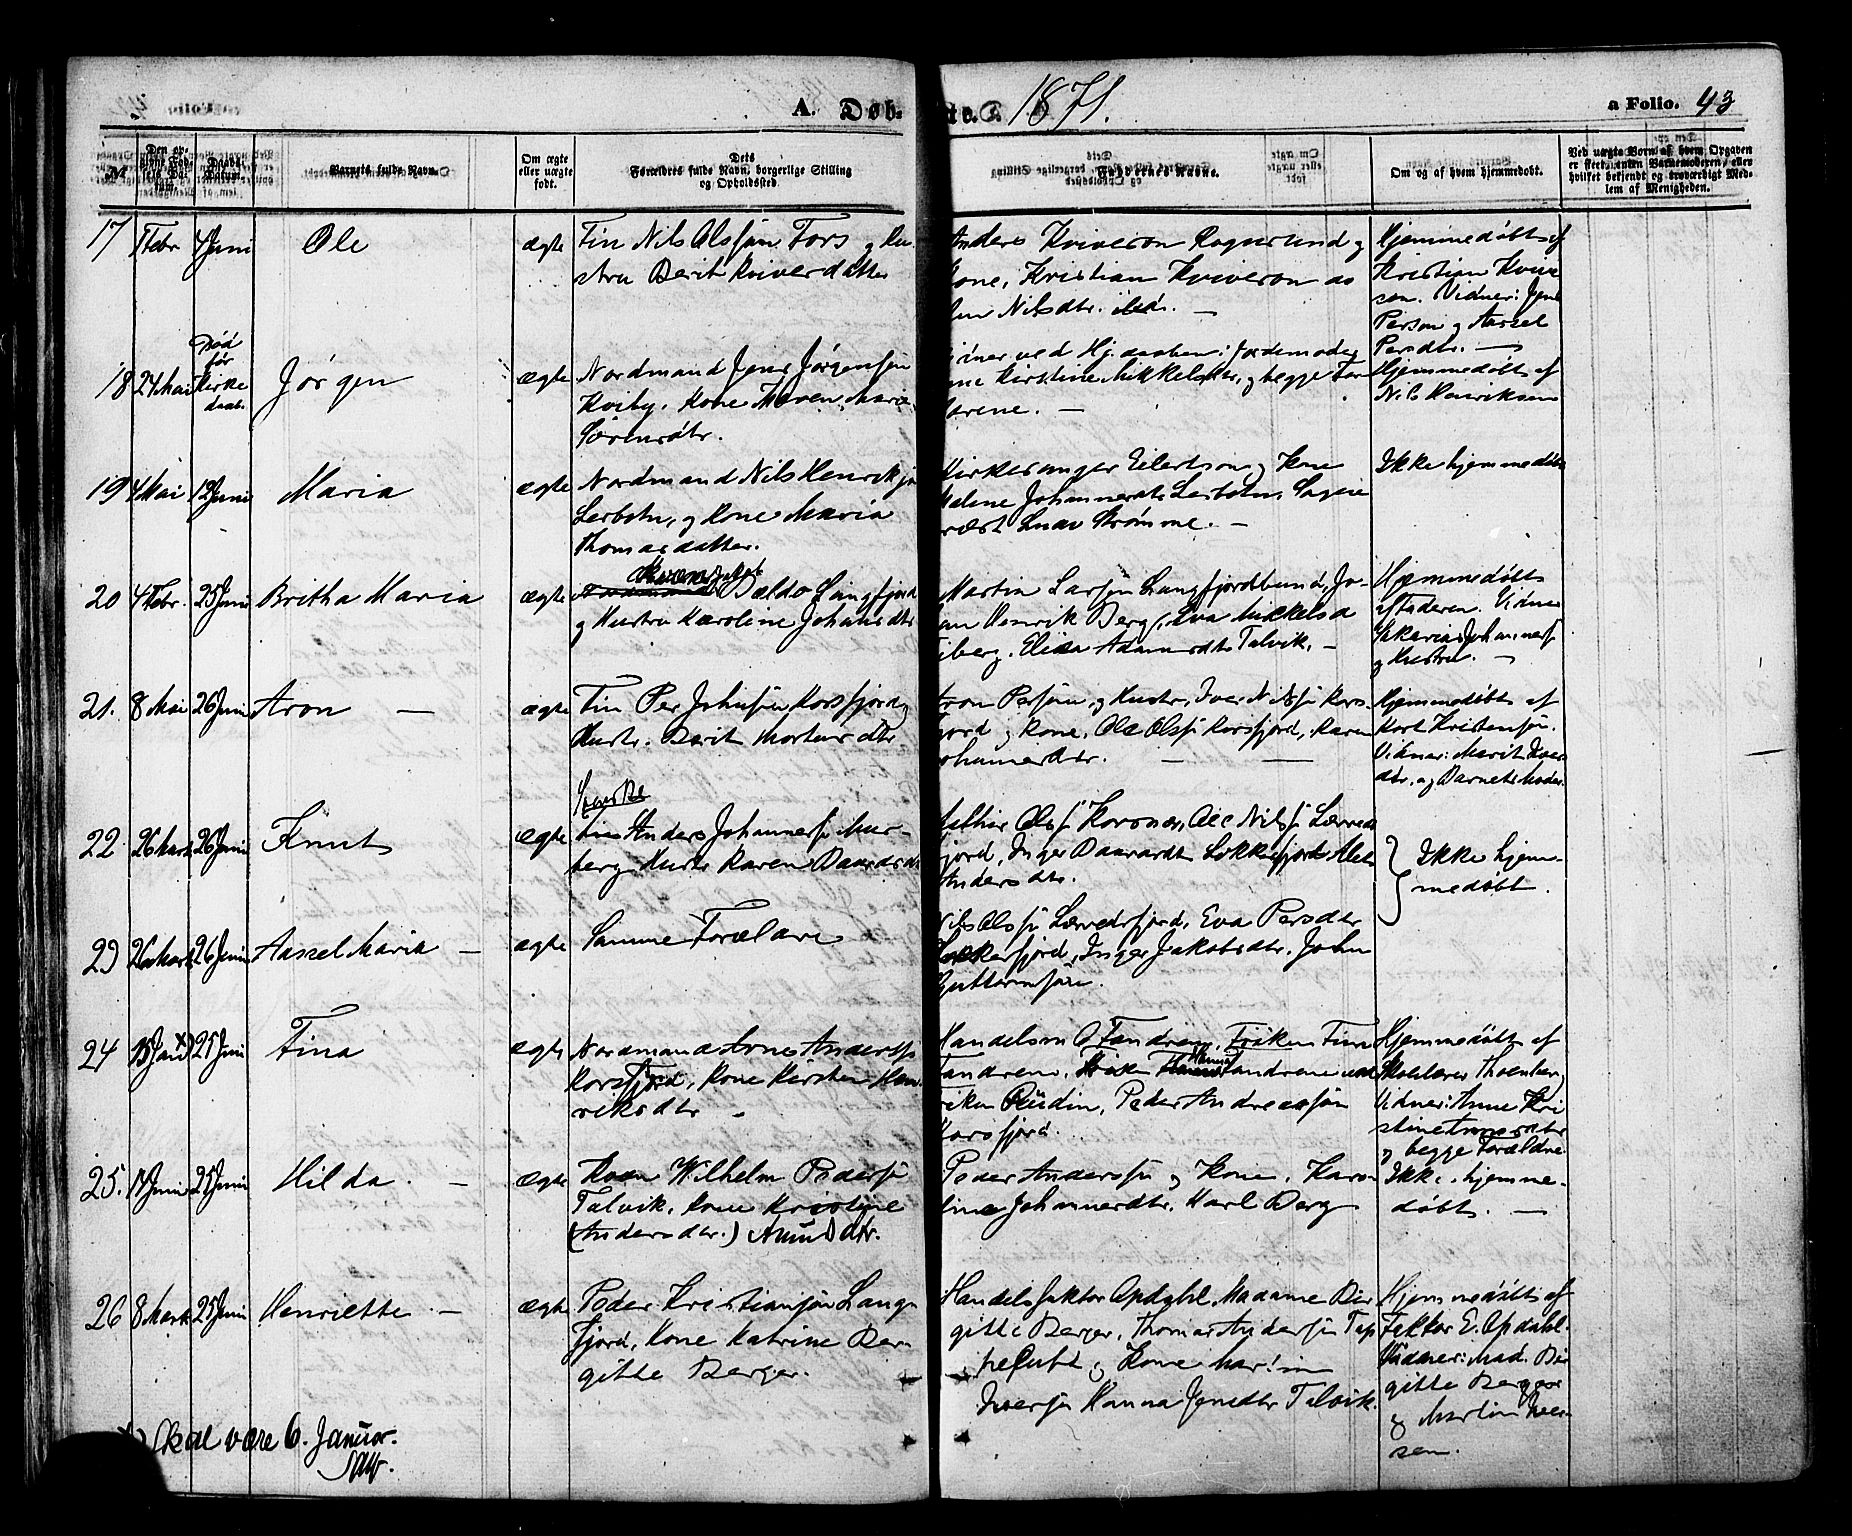 A. Døbte. 1871. a Folio. 43
№ Barnets fulde Navn. Om ægte eller uægte født. Dets Forældres fulde Navn, borgerlige Stilling og Opholdssted. Faddernes Navne. Om og af hvem hjemmedøbt. Ved uægte Børn af hvem Opgaven er skeet, enten Barnemoderen, eller hvilket bekjendt og troværdigt Medlem af Menigheden.
17 1 Febr 4 Juni Ole ægte Fin Nils Olssøn Fors og Hu-
stru Berit Kviversdatter
Anders Kviverson Rognsund og
Kone, Kristian Kviverson
Nilsdtr. ibd. —
Hjemmedøbt af
Kristian Kviver
son. Vidner: Jens
Person og Aassel
Persdtr. —
18 24 Mai Død
før
Kirke
daab.
Jørgen ægte Nordmand Jens Jørgensøn
Kviby, Kone Maren Marie
Sørensdtr.
Vidner ved Hj.daaben: Jordemoder
Kirstine Mikkelsdtr, og begge For-
ældrene. —
Hjemmedøbt af
Nils Henriksen
19 4 Mai 12 Juni Maria ægte Nordmand Nils Henriks
Lerbotn, og Kone Maria
Thomasdatter.
Kirkesanger Eilertson og Kone
Helene Johannesdtr Lerbotn,
Strømme. —
Ikke hjemmedøbt
20 4 Febr. 25 Juni Britha Maria ægte Bældo Langfjord
og Hustru Karoline Johansdtr
Martin Larsøn Langfjordbund, Jo-
han Henrik Berg, Eva Mikkelsd
Elisa Adamsdtr Talvik. —
Hjemmedøbt
af Faderen. Vidner
Sakarias Johanness
og Hustru. —
21. 8 Mai 26 Juni Aron — ægte Fin Per Johnsøn Korsfjord og
Hustr. Berit Mortensdtr
Aron Persøn og Hustr, Iver Nilss Kors-
fjord og Kone, Ole Olss Korsfjord, Karen
Johannesdtr. — —
Hjemmedøbt af
Kort Kristensøn.
Vidner: Marit Iver
dtr. og Barnets Moder
22 26 Marts 26 Juni Knut ægte Fin Anders Johanness Mur-
berg Hustr Karen Baardsdtr
Olss Korsnes, Ole Nilss Lerreds
fjord, Inger Baardsdtr Lokkefjord
Andersdtr.
Ikke hjem-
medøbt.
23 26 Marts 26 Juni Aassel Maria — ægte Samme Forældre
Nils Olss Lerredsfjord, Eva Persdtr
Lokkerfjord, Inger Jakobsdtr. John
Guttormsøn.
24 15 Jan x) 25 Juni Tina ægte Nordmand Arne Anderss
Korsfjord, Kone Kirsten Hen-
riksdtr —
Handelsm O Fandrem, Frøken Tina
Fandrem, Frøken Hanna Fandrem
frøken Rudin, Peder Andreassøn
Korsfjord.
Hjemmedøbt af
Skolelærer Thomberg
Vidner: Anne Kri
stine
og begge Forældre
25. 14 Juni 25 Juni Hilda. — ægte Kvæn Wilhelm Pederss
Talvik, Kone Kristine
(Andersdtr.) Amundsdtr.
Peder Anderss og Kone, Karo-
line Johannesdtr. Karl Berg
Ikke hjemme-
døbt. —
26 8 Marts 25 Juni Henriette — ægte Peder Kristiansøn Lang-
fjord, Kone Katrine Ber-
gitte Berger.
Handelsfaktor Opdahl, Madame Bir
gitte Berger, Thomas Anderss Tap
peluft og Kone, Martin
Iverss Hanna Jensdtr Talvik.
Hjemmedøbt af
Faktor E. Opdahl.
Vidner: Mad. Bir
gitte Berger
og Martin Iver-
sen.
x) Skal være 6. Januar.